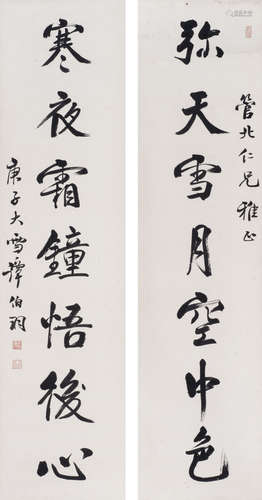 管北仁兄雅正
弥天雪月空中色
寒夜霜鐘悟後心
庚子大雪譚伯羽